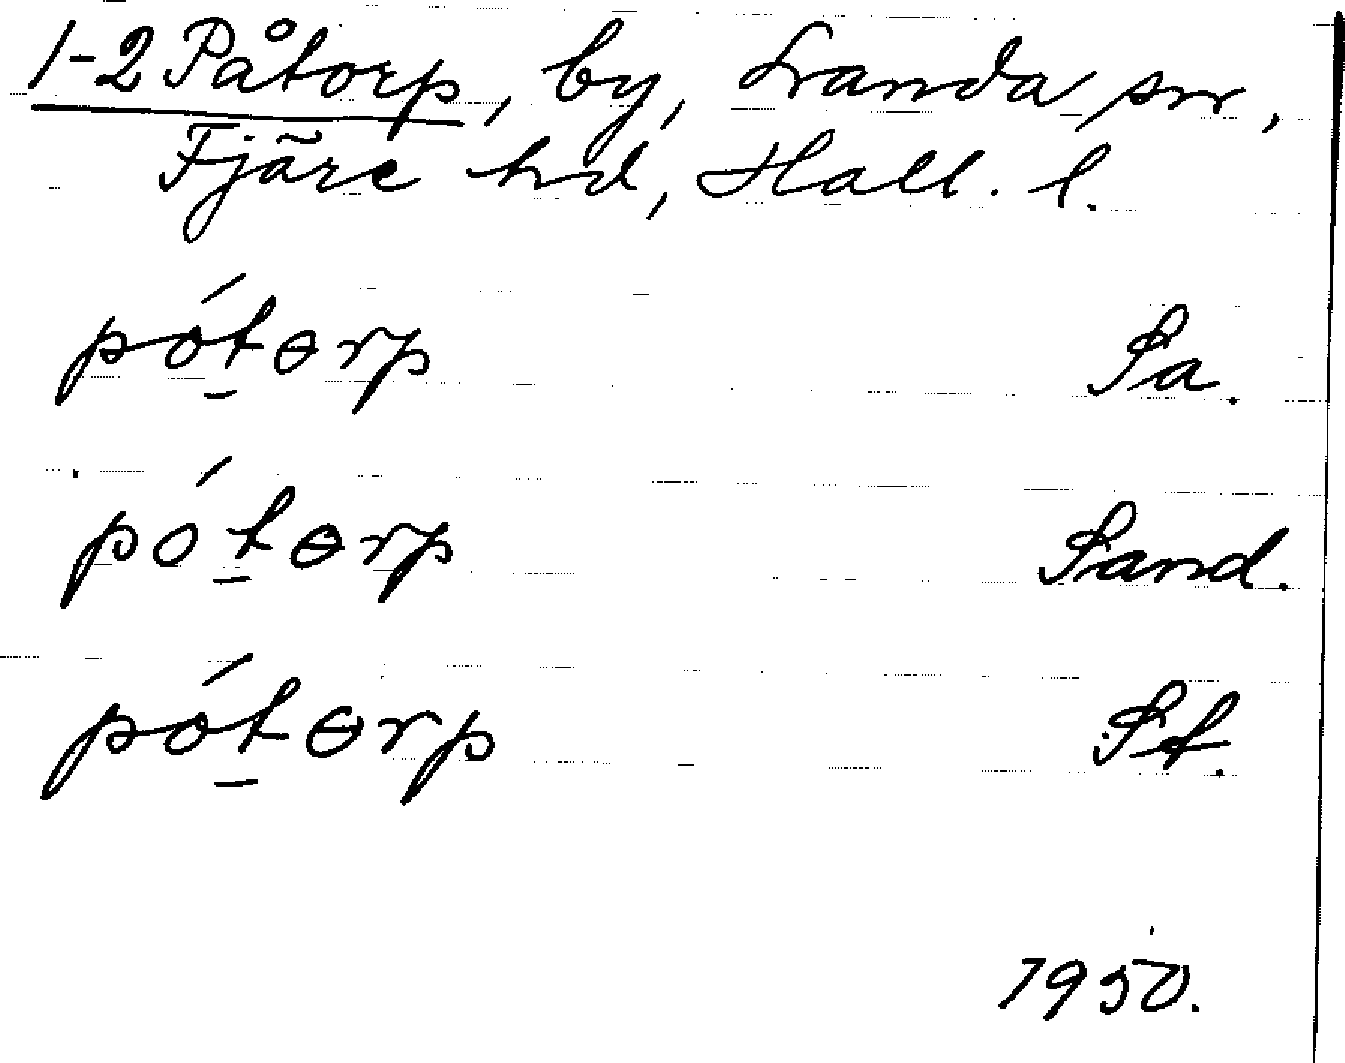 1-2 Påtorp, by, Landa sn,
Fjäre hd, Hall. l.
pót̠ɵrp Sa.
pót̠ɵrp Sand.
pót̠ɵrp Sf.
1950.